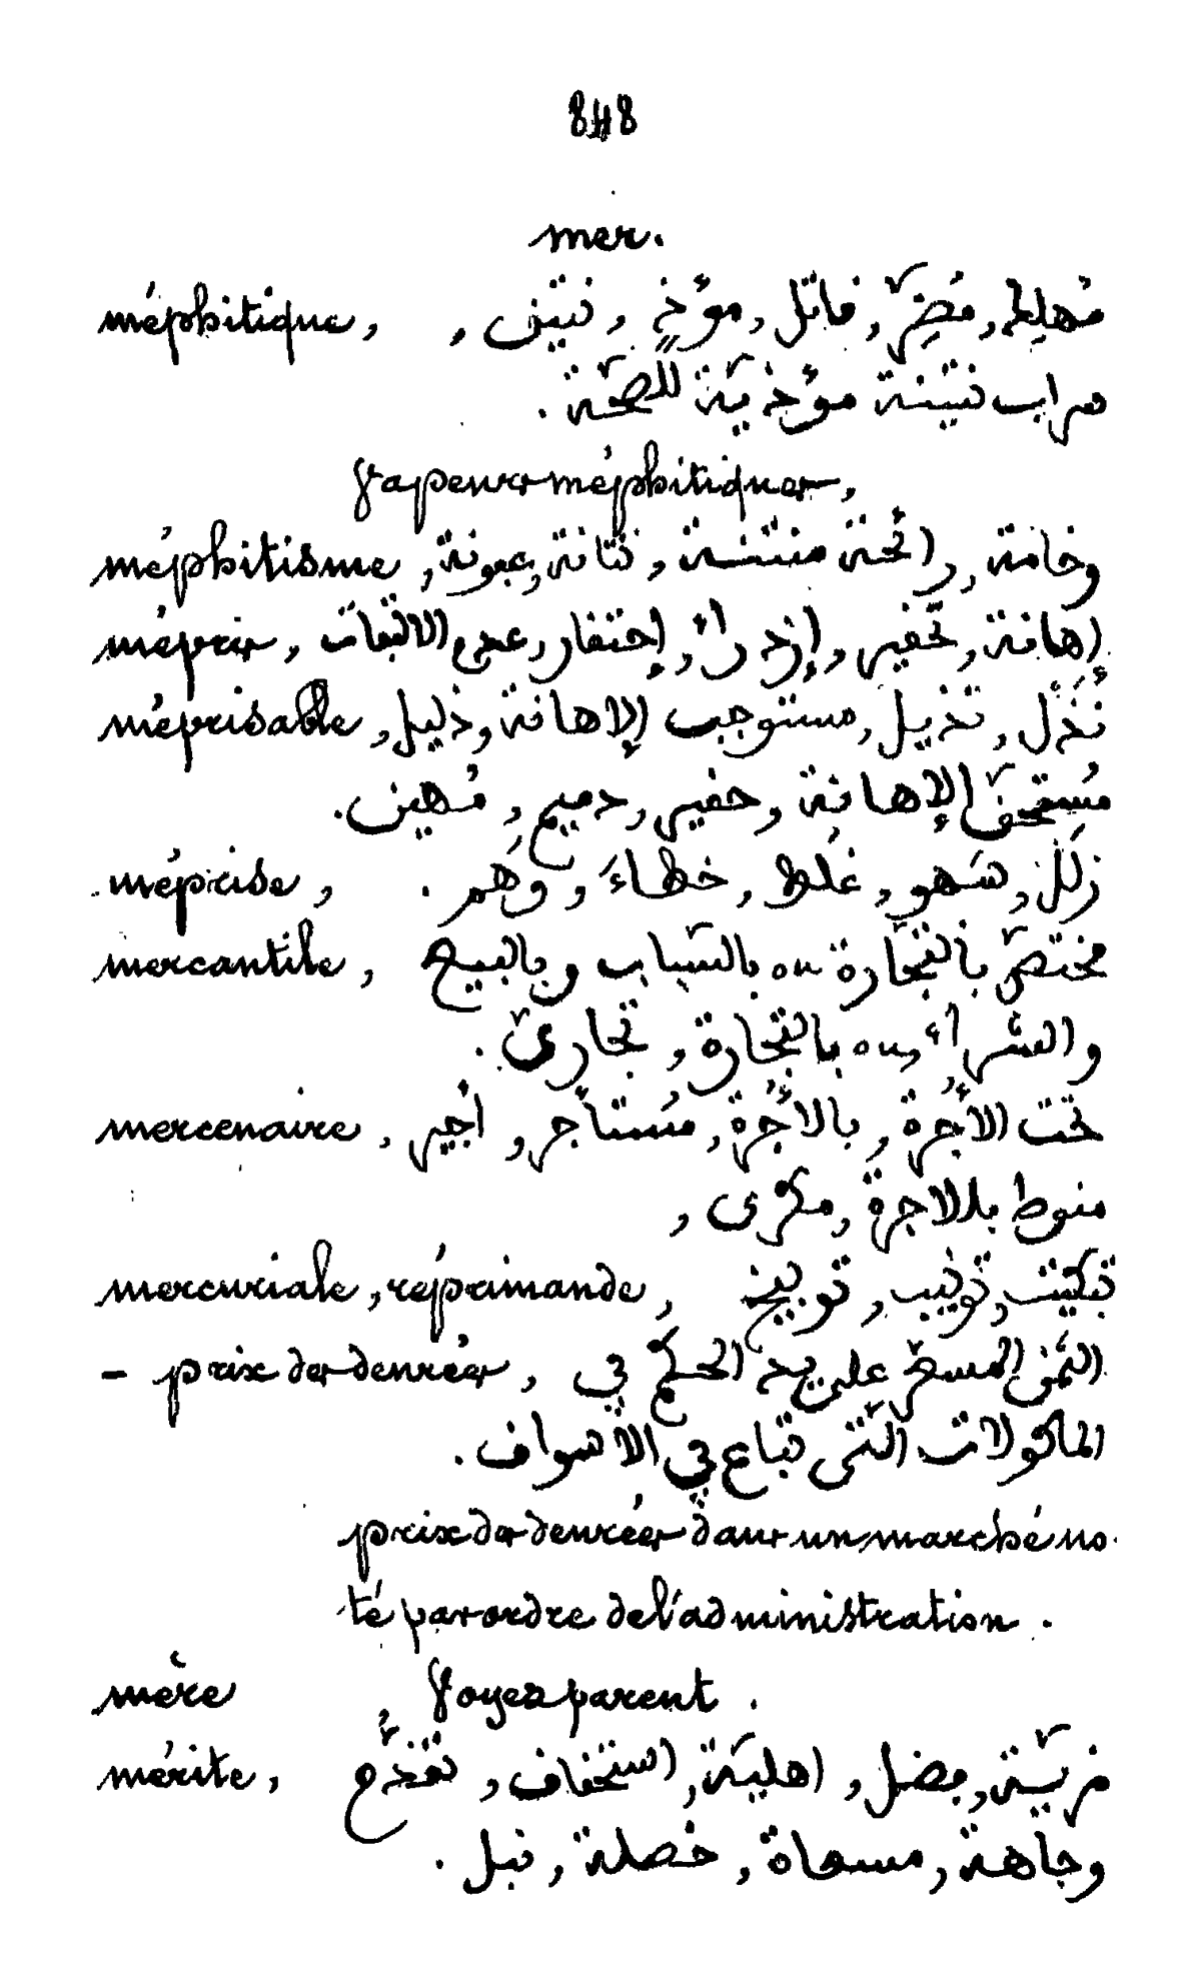 848
mer.
méphitique, مُهلِك, مُضِرّ, قاتل, مؤذٍ, نتين,
نتينة مؤذيّة للصحّة.
Vapeurs méphitiques,
méphitisme, وخامة, رائحة منتنـة, نتانة, عفونة,
mépris, إهانة, تحقير, إزدراء, إحتقار, عدم الالتفات
méprisable, نَذْل, نذيل, مستوجب الإهانة, ذليل,
مُستحقّ الإهانة, حقير, دميم, مُهين.
méprise, زلَل, سَهو, غَلَط, خطاءَ, وَهَم.
mercantile, مختصّ بالتجّارة ou بالسّباب وبالبيع
والشراء, ou بالتجارة, تجاريّ.
mercenaire, تحت الأُجرة, بالأُجرة, مُستأجر, أجير,
منوط بللاجرة, مكرى,
mercuriale, réprimande, تبكيت, توبيخ
– prix des denrées, الثمن المسعّر على يد الحكم في
المأكولات الّتي تباع في الأسواق.
prix des denrées dans un marché no-
té par ordre de l'administration.
mère, Voyez parent.
mérite, مزيّـة, فضل, اهليّة, استحقاق, تقدُّم
وجاهة, مسعاة, خصلة, نبل.